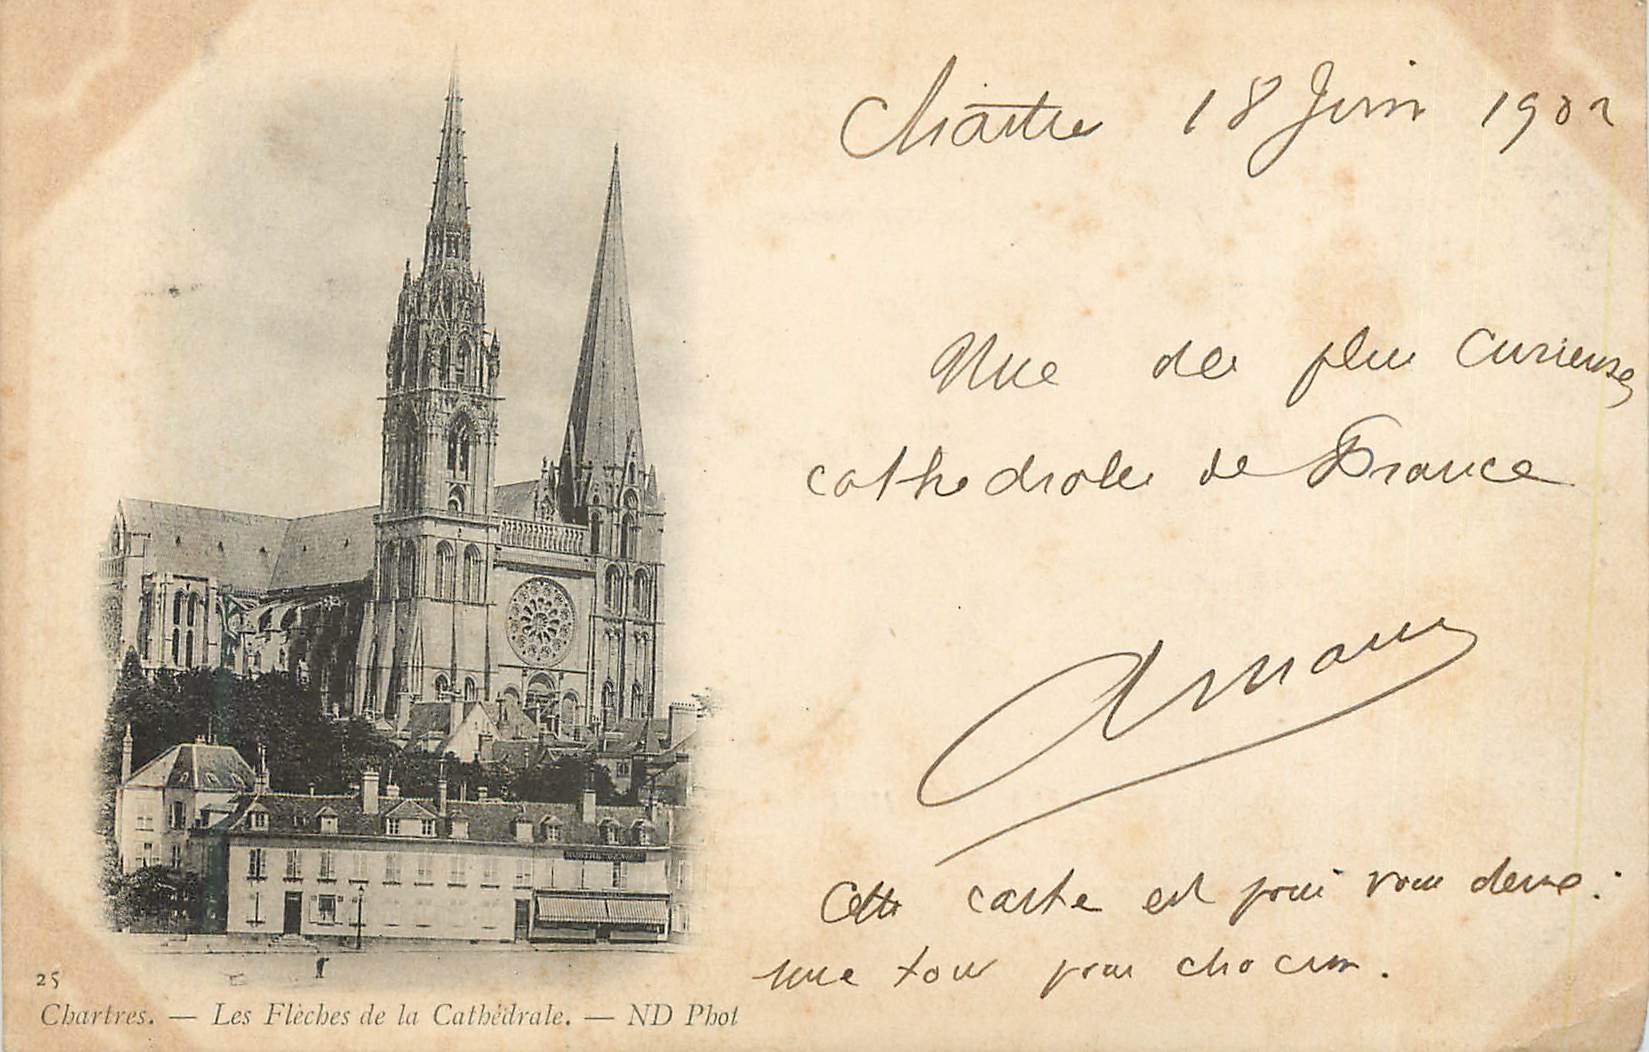 Chartres 18 Juin 1902
Une des plus curieuses
cathedrales de France
Cette carte est pour vous deux :
une tour pour chacun.
25
Chartres. — Les Flèches de la Cathédrale. — ND Phot